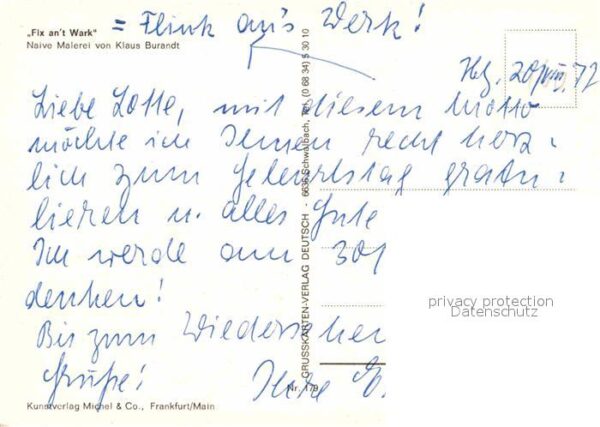 „Fix an't Wark" = Flink an's Werk!
Naive Malerei von Klaus Burandt
Hbg. 20/VIII. 77
Liebe Lotte, mit diesem Motto
möchte ich Ihnen recht herz-
lich zum Geburtstag gratu-
lieren u. alles Gute
Ich werde am 30/
denken!
Bis zum Wiedersehen
Grüße! Ihre
GRUSSKARTEN-VERLAG DEUTSCH · 6636 Schwalbach, Tel. (0 68 34) 5 30 10
Nr. 179
Kunstverlag Michel & Co., Frankfurt/Main
privacy protection
Datenschutz